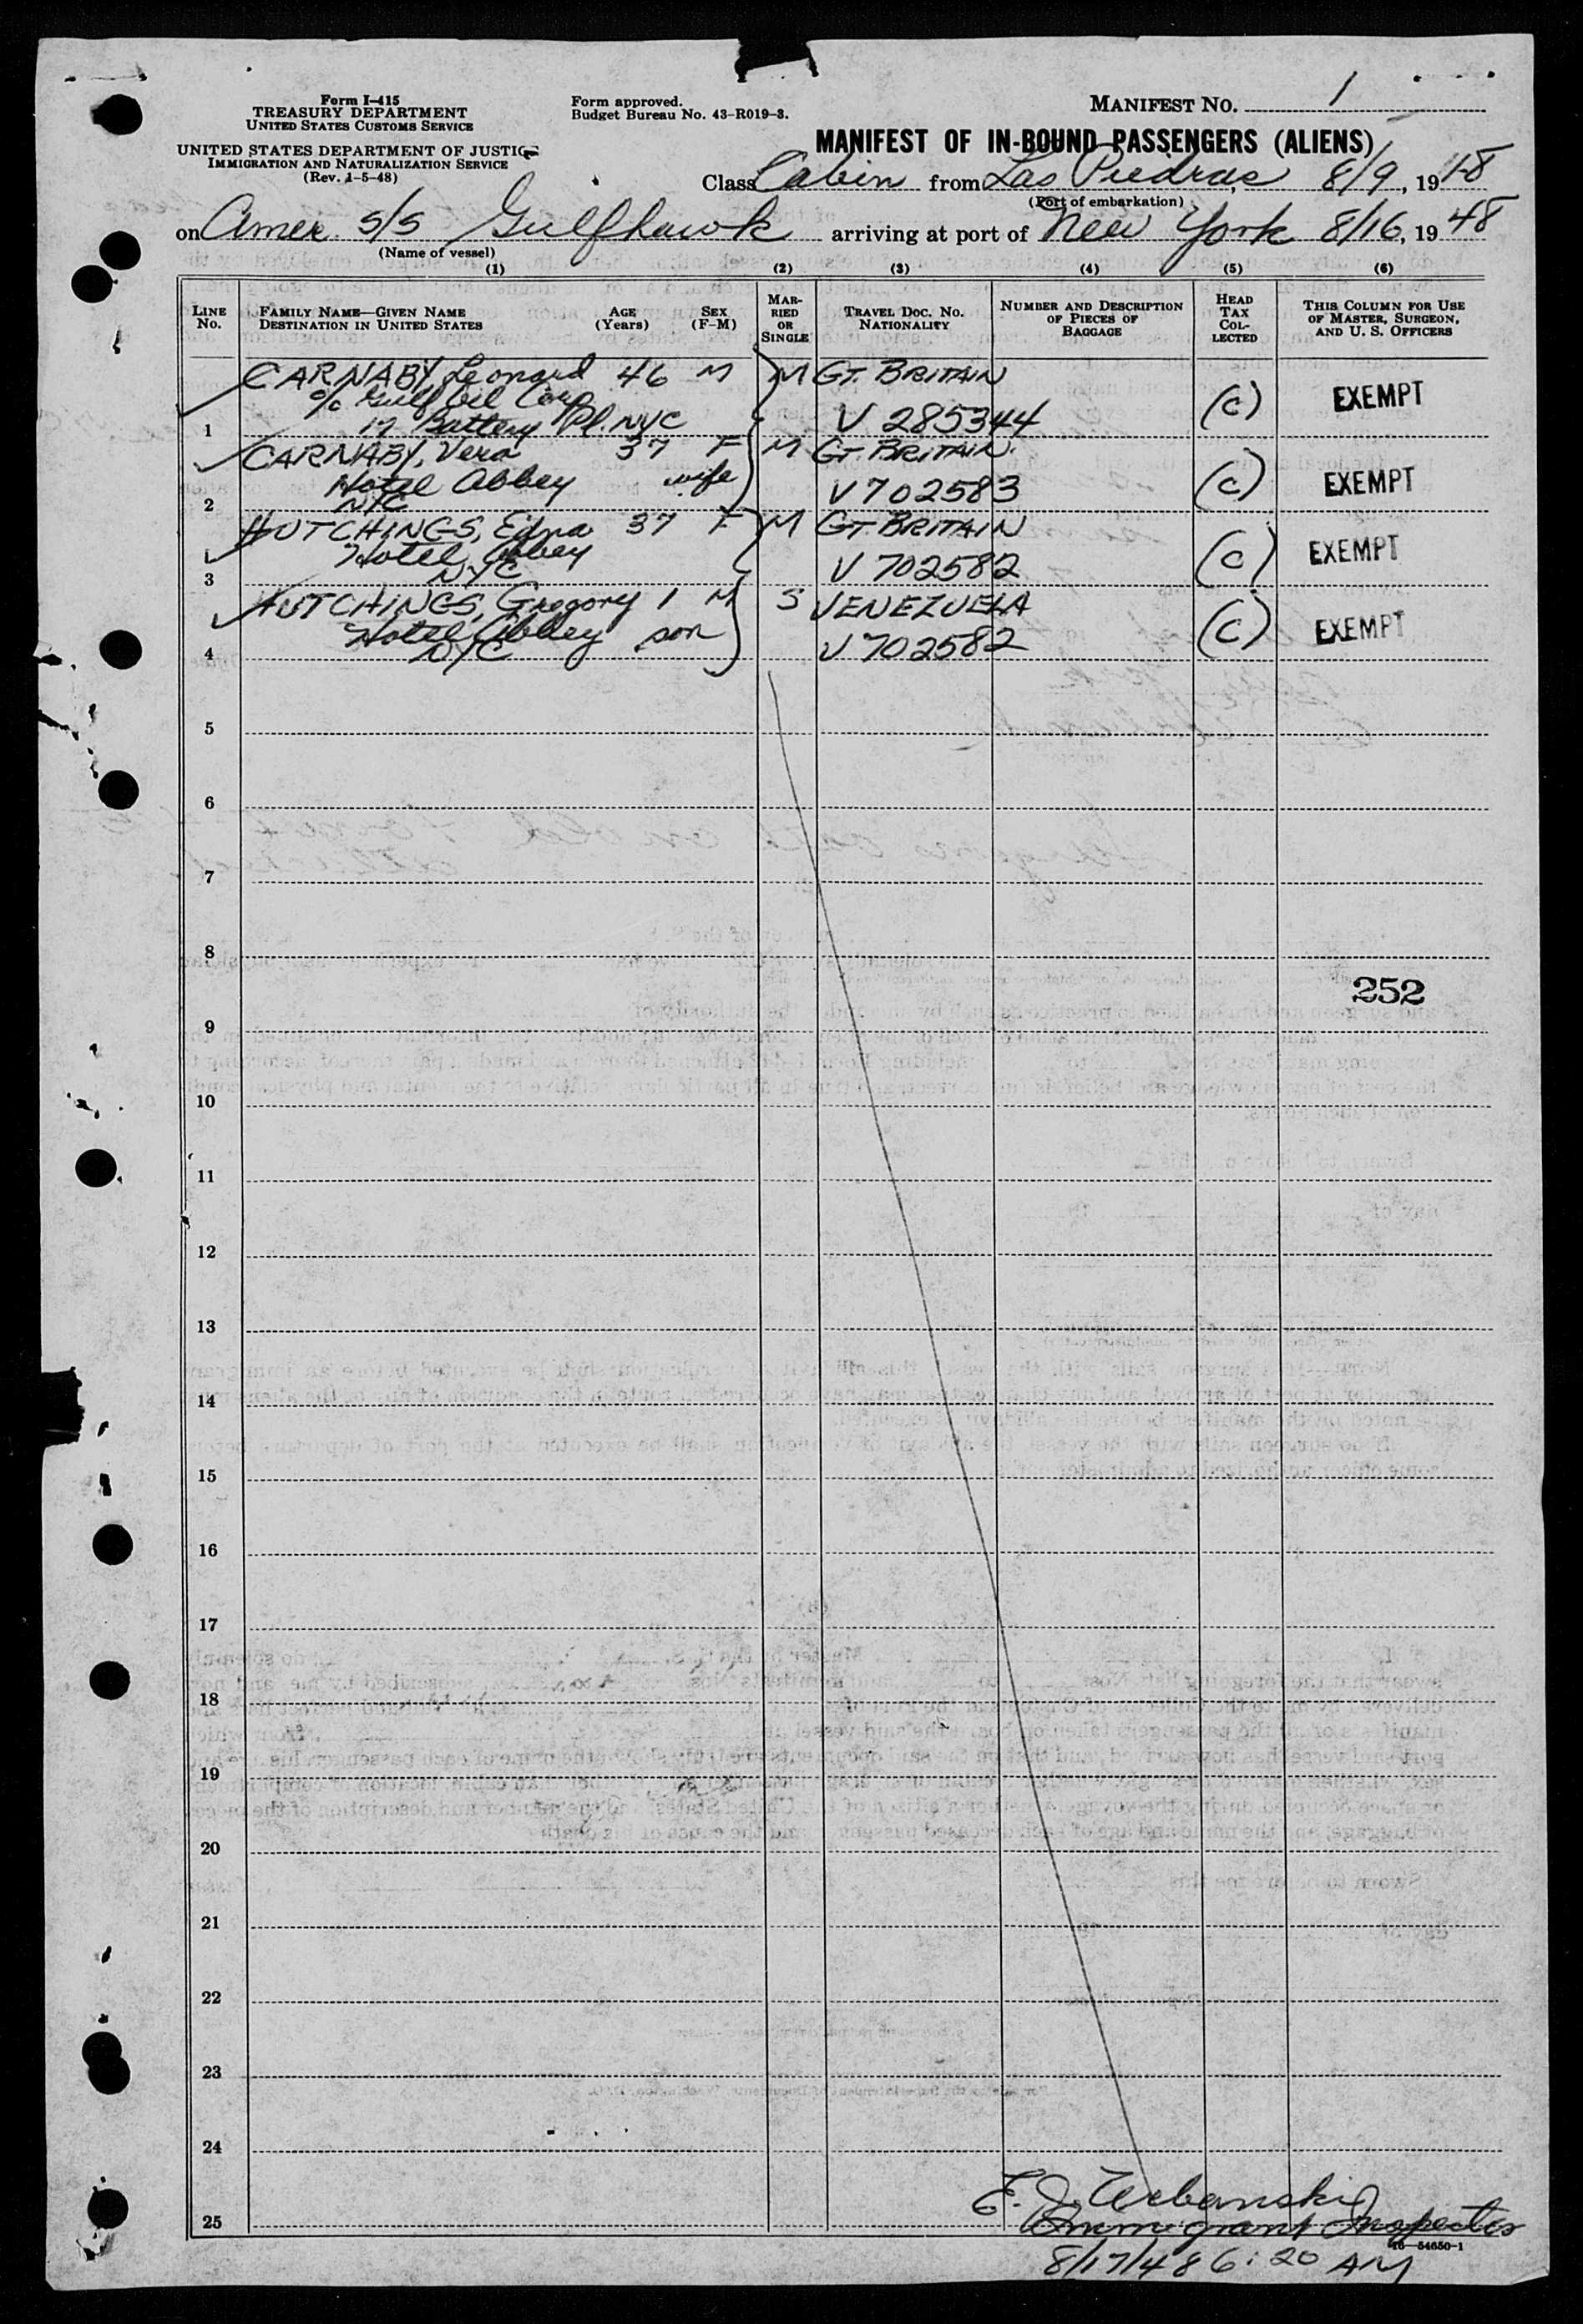 Form I-415
TREASURY DEPARTMENT
UNITED STATES CUSTOMS SERVICE
UNITED STATES DEPARTMENT OF JUSTICE
IMMIGRATION AND NATURALIZATION SERVICE
(Rev. 1-5-48)
Form approved.
Budget Bureau No. 43-R019-3.
MANIFEST NO. 1
MANIFEST OF IN-BOUND PASSENGERS (ALIENS)
Class Cabin from Las Piedras, 8/9, 1948
(Port of embarkation)
on Amer. S/S Gulfhawk arriving at port of New York 8/16, 1948
(Name of vessel)
(1) (2) (3) (4) (5) (6)
LINE No. FAMILY NAME—GIVEN NAME DESTINATION IN UNITED STATES AGE (Years) SEX (F-M) MARRIED OR SINGLE TRAVEL DOC. NO. NATIONALITY NUMBER AND DESCRIPTION OF PIECES OF BAGGAGE HEAD TAX COLLECTED THIS COLUMN FOR USE OF MASTER, SURGEON, AND U. S. OFFICERS
CARNABY, Leonard 46 M M GT. BRITAIN
c/o Gulf Oil Corp (C) EXEMPT
1 17 Battery Pl. NYC V 285344
CARNABY, Vera 37 F M GT. BRITAIN.
Hotel Abbey wife V702583 (C) EXEMPT
2 NYC
HUTCHINGS, Edna 37 F M GT. BRITAIN
Hotel Abbey V 702582 (C) EXEMPT
3 NYC
HUTCHINGS, Gregory 1 M S VENEZUELA
Hotel Abbey son V 702582 (C) EXEMPT
4 NYC
5
6
7
8
252
9
10
11
12
13
14
15
16
17
18
19
20
21
22
23
24
E. J. Urbanski
25 Immigrant Inspector
16—54650-1
8/17/48 6:20 AM